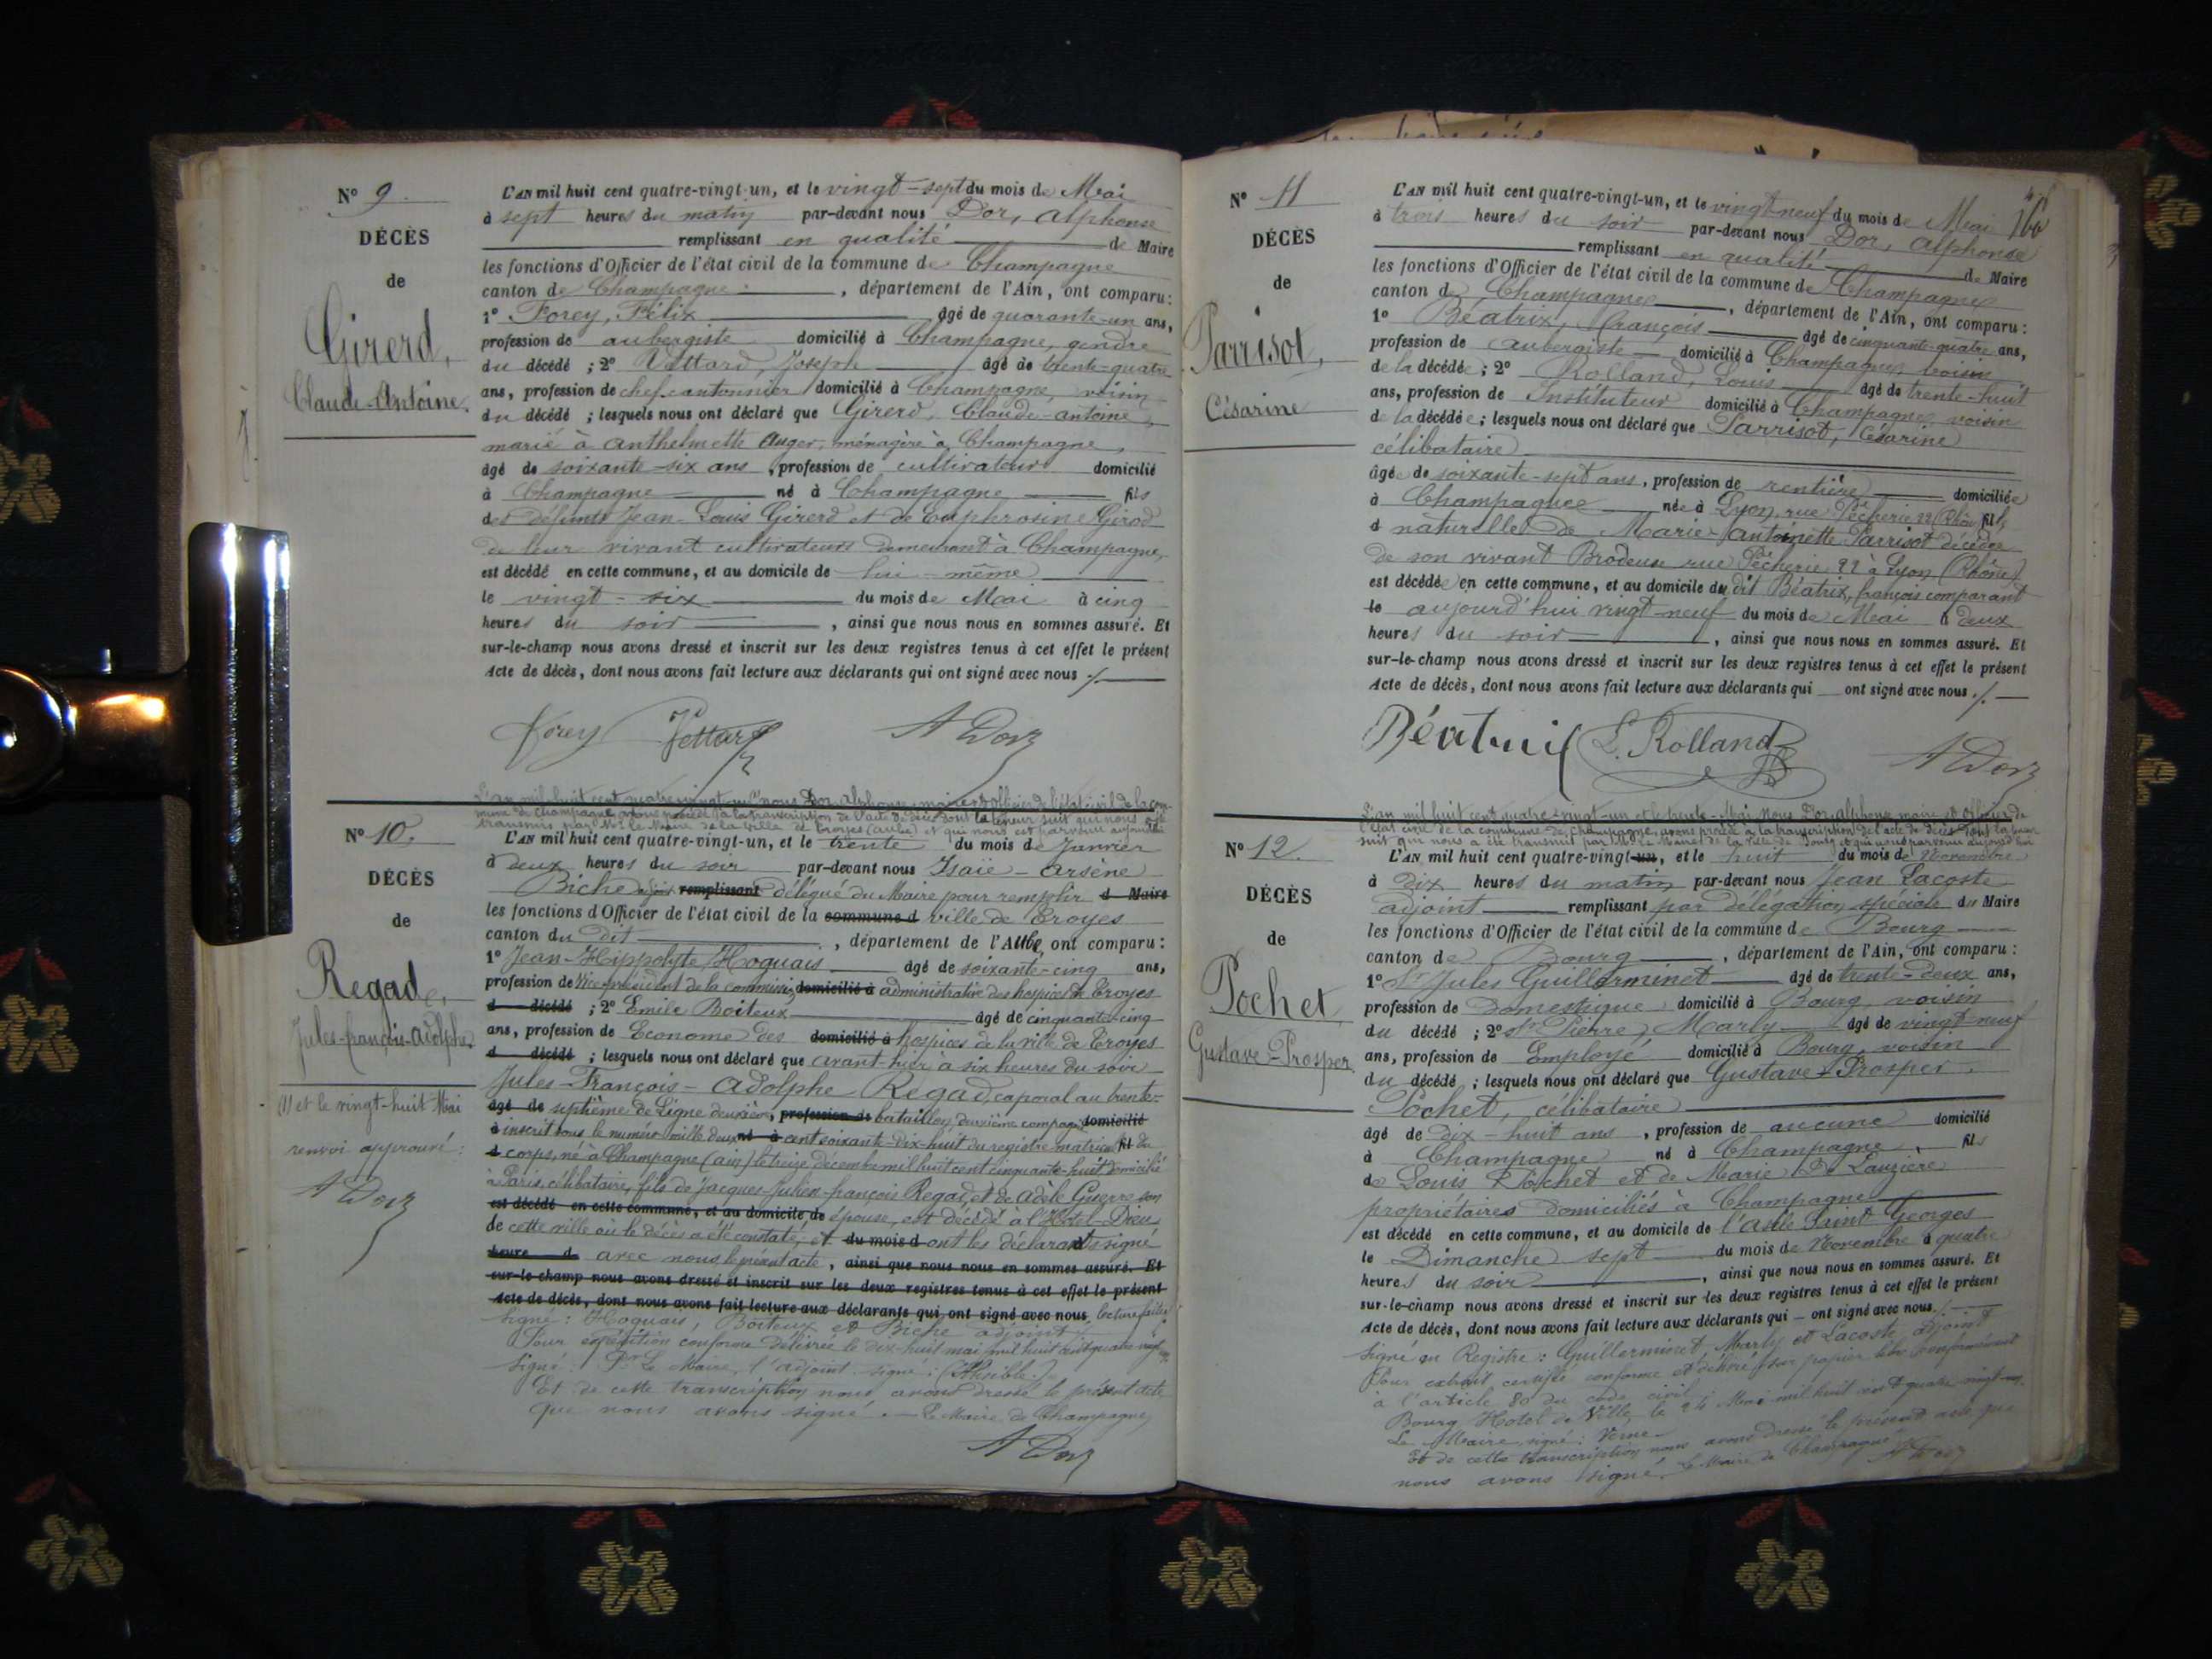 N° 9.
DÉCÈS
de
Girerd,
Claude-Antoine.
L'AN mil huit cent quatre-vingt-un, et le vingt-sept du mois de Mai
à sept heures du matin par-devant nous Dor, Alphonse
remplissant en qualité de Maire
les fonctions d'Officier de l'état civil de la commune de Champagne
canton de Champagne, département de l'Ain, ont comparu :
1° Forey, Félix âgé de quarante-un ans,
profession de aubergiste domicilié à Champagne, gendre
du décédé ; 2° Vettard, Joseph âgé de trente-quatre
ans, profession de chef-cantonnier domicilié à Champagne, voisin
du décédé ; lesquels nous ont déclaré que Girerd, Claude-antoine,
marié à anthelmette Auger, ménagère à Champagne,
âgé de soixante-six ans, profession de cultivateur domicilié
à Champagne né à Champagne fils
des défunts Jean-Louis Girerd et de Euphrosine Girod
de leur vivant cultivateurs demeurant à Champagne,
est décédé en cette commune, et au domicile de lui-même
le vingt-six du mois de Mai à cinq
heures du soir, ainsi que nous nous en sommes assuré. Et
sur-le-champ nous avons dressé et inscrit sur les deux registres tenus à cet effet le présent
Acte de décès, dont nous avons fait lecture aux déclarants qui ont signé avec nous ./.
Forey Vettard A Dor
L'an mil huit cent quatre-vingt-un (1) nous Dor, alphonse, maire et officier de l'état-civil de la com-
mune de Champagne avons procédé à la transcription de l'acte de décès dont la teneur suit qui nous a été
transmis par Mr le Maire de la ville de Troyes (aube) et qui nous est parvenu aujourd'hui
N° 10.
DÉCÈS
de
Regad,
Jules-françois-Adolphe.
(1) et le vingt-huit Mai
renvoi approuvé :
A Dor
L'AN mil huit cent quatre-vingt-un, et le trente du mois de Janvier
à deux heures du soir par-devant nous Isaïe-Arsène
Biche adjoint remplissant délégué du Maire pour remplir d Maire
les fonctions d'Officier de l'état civil de la commune d ville de Troyes
canton du dit, département de l'Aube, ont comparu :
1° Jean-Hippolyte Hoquais âgé de soixante-cinq ans,
profession de Vice-président de la commission domicilié à administrative des hospices de Troyes
d décédé ; 2° Emile Boiteux âgé de cinquante-cinq
ans, profession de Econome des domicilié à hospices de la ville de Troyes
d décédé ; lesquels nous ont déclaré que avant-hier à six heures du soir
Jules-François-Adolphe Regad caporal au trente-
âgé de septième de Ligne deuxième, profession de bataillon, deuxième compagnie domicilié
à inscrit sous le numéro mille deux né à cent soixante-dix-huit du registre matricule fil du
d corps, né à Champagne (ain) le treize décembre mil huit cent cinquante-huit domicilié
à Paris, célibataire, fils de Jacques Julien françois Regad, et de Adèle Guerre son
est décédé en cette commune, et au domicile de épouse, est décédé à l'Hotel-Dieu
de cette ville où le décès a été constaté, et du mois d ont les déclarants signé
heure d avec nous le présent acte, ainsi que nous nous en sommes assuré. Et
sur-le-champ nous avons dressé et inscrit sur les deux registres tenus à cet effet le présent
Acte de décès, dont nous avons fait lecture aux déclarants qui ont signé avec nous, lecture faite.
Signé : Hoquais, Boiteux et Biche adjoint.
Pour expédition conforme délivrée le dix-huit mai mil huit cent quatre-vingt
Signé : Pr Le Maire, l'adjoint signé : (Illisible.)
Et de cette transcription nous avons dressé le présent acte
que nous avons signé. — Le Maire de Champagne,
A Dor
N° 11
DÉCÈS
de
Parrisot,
Césarine
L'AN mil huit cent quatre-vingt-un, et le vingt-neuf du mois de Mai
à trois heures du soir par-devant nous Dor, Alphonse
remplissant en qualité de Maire
les fonctions d'Officier de l'état civil de la commune de Champagne
canton de Champagne, département de l'Ain, ont comparu :
1° Béatrix, François âgé de cinquante-quatre ans,
profession de aubergiste domicilié à Champagne voisin
de la décédée ; 2° Rolland, Louis âgé de trente-huit
ans, profession de Instituteur domicilié à Champagne voisin
d la décédée ; lesquels nous ont déclaré que Parrisot, Césarine
célibataire
âgée de soixante-sept ans, profession de rentière domiciliée
à Champagne née à Lyon, rue Pécherie 22 (Rhône) fille
d naturelle de Marie-antoinette Parrisot décédée
de son vivant Brodeuse rue Pécherie 22 à Lyon (Rhône)
est décédée en cette commune, et au domicile du dit Béatrix, françois comparant
le aujourd'hui vingt-neuf du mois de Mai à deux
heures du soir, ainsi que nous nous en sommes assuré. Et
sur-le-champ nous avons dressé et inscrit sur les deux registres tenus à cet effet le présent
Acte de décès, dont nous avons fait lecture aux déclarants qui ont signé avec nous ./.
Béatrix L. Rolland A Dor
L'an mil huit cent quatre-vingt-un et le trente Mai nous Dor, alphonse maire et officier de
l'état civil de la commune de Champagne, avons procédé à la transcription de l'acte de décès dont la teneur
suit qui nous a été transmis par Mr le Maire de la ville de Bourg et qui nous est parvenu aujourd'hui
N° 12.
DÉCÈS
de
Pochet
Gustave-Prosper
L'AN mil huit cent quatre-vingt-un, et le huit du mois de Novembre
à dix heures du matin par-devant nous Jean Lacoste
adjoint remplissant par délégation spéciale du Maire
les fonctions d'Officier de l'état civil de la commune de Bourg
canton de Bourg, département de l'Ain, ont comparu :
1° Sr Jules Guillerminet âgé de trente-deux ans,
profession de Domestique domicilié à Bourg, voisin
du décédé ; 2° Sr Pierre Marly âgé de vingt-neuf
ans, profession de Employé domicilié à Bourg, voisin
du décédé ; lesquels nous ont déclaré que Gustave-Prosper
Pochet, célibataire
âgé de dix-huit ans, profession de aucune domicilié
à Champagne né à Champagne, fils
de Louis Pochet et de Marie De Lauzière
propriétaires domiciliés à Champagne
est décédé en cette commune, et au domicile de l'asile Saint Georges
le Dimanche sept du mois de Novembre à quatre
heures du soir, ainsi que nous nous en sommes assuré. Et
sur-le-champ nous avons dressé et inscrit sur les deux registres tenus à cet effet le présent
Acte de décès, dont nous avons fait lecture aux déclarants qui — ont signé avec nous ./.
Signé au Registre : Guillerminet, Marly et Lacoste, adjoint
Pour extrait certifié conforme et délivré sur papier libre conformément
à l'article 80 du code civil.
Bourg Hotel de Ville, le 24 Mai mil huit cent quatre-vingt-un.
Le Maire, signé :
Et de cette transcription nous avons dressé le présent acte que
nous avons signé. Le Maire de Champagne
A Dor